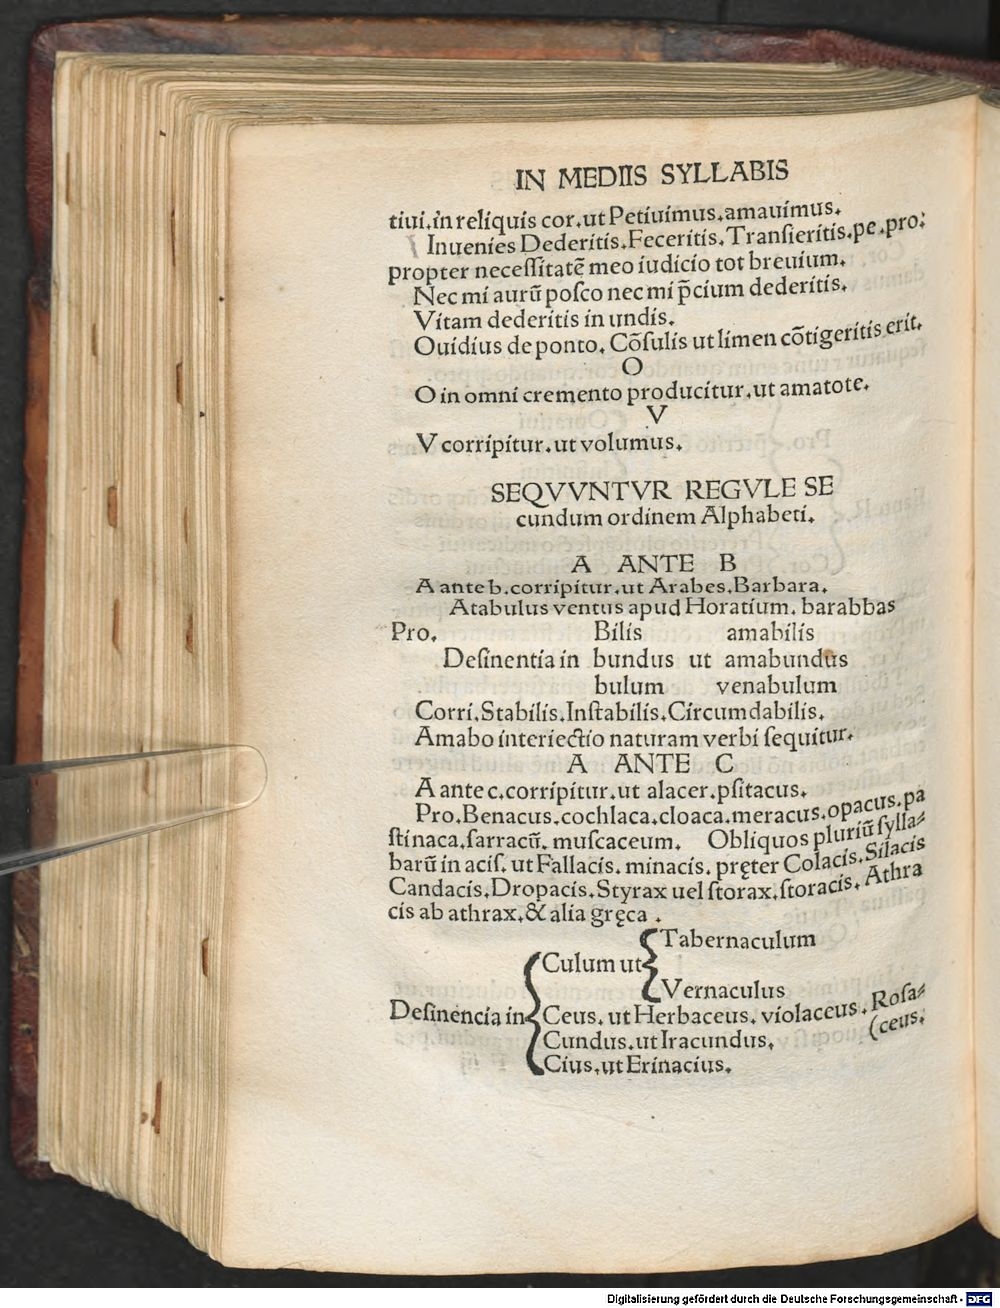 IN MEDIIS SYLLABIS
tiui.in reliquis cor.ut Petiuimus.amauimus.
Inuenies Dederitis.Feceritis.Transieritis.pe.pro:
propter necessitatē meo iudicio tot breuium.
Nec mi aurū posco nec mi p̄cium dederitis.
Vitam dederitis in undis.
Ouidius de ponto. Cōsulis ut limen cōtigeritis erit.
O
O in omni cremento producitur.ut amatote.
V
V corripitur.ut volumus.
SEQVVNTVR REGVLE SE
cundum ordinem Alphabeti.
A ANTE B
A ante b.corripitur.ut Arabes.Barbara.
Atabulus ventus apud Horatium. barabbas
Pro. Bilis amabilis
Desinentia in bundus ut amabundus
bulum venabulum
Corri.Stabilis.Instabilis.Circumdabilis.
Amabo interiectio naturam verbi sequitur.
A ANTE C
A ante c.corripitur.ut alacer.psitacus.
Pro.Benacus.cochlaca.cloaca.meracus.opacus.pa
stinaca.sarracū. muscaceum. Obliquos pluriū sylla⸗
barū in acis. ut Fallacis. minacis. pręter Colacis.Silacis
Candacis.Dropacis.Styrax uel storax.storacis. Athra
cis ab athrax.& alia gręca .
Tabernaculum
Culum ut
Vernaculus
Desinencia in Ceus. ut Herbaceus. violaceus. Rosa⸗
(ceus.
Cundus.ut Iracundus.
Cius.ut Erinacius.
Digitalisierung gefördert durch die Deutsche Forschungsgemeinschaft - DFG